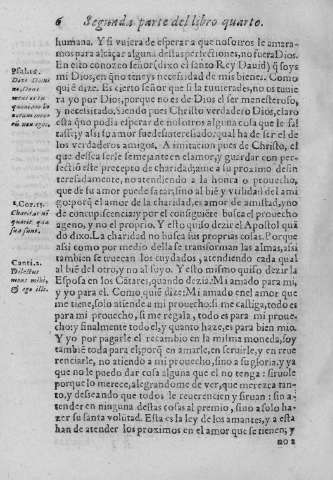 6 Segunda parte del libro quarto.
humana. Y si vuiera de esperar a que nosotros le amara-
mos para alcãçar alguna destas perfectiones, no fuera Dios.
Psal. 15.
En esto conozco señor (dixo el santo Rey Dauid) q̃ soys
mi Dios, en q̃ no teneys necessidad de mis bienes. Como
quiẽ dize. Es cierto señor que si la tuuierades, no os tuuie
ra yo por Dios, porque no es de Dios el ser menesteroso,
y necessitado. Siendo pues Christo verdadero Dios, claro
esta que podia esperar de nosotros alguna cosa que le fal
tasse; y assi su amor fue desinteressado: qual ha de ser el de
los verdaderos amigos. A imitacion pues de Christo, el
que dessea serle semejante en el amor, y guardar con per-
fectiõ este precepto de charidad; ame a su proximo desin
teresadamente, no atendiendo a la honra o prouecho,
que de su amor puede sacar, sino al biẽ y vtilidad del ami
1. Cor. 13.
go: porq̃ el amor de la charidad, es amor de amistad, y no
de concupiscencia: y por el consiguiẽte busca el prouecho
ageno, y no el proprio. Y esto quiso dezir el Apostol quã
do dixo. La charidad no busca sus propias cosas. Porque
assi como por medio della se transforman las almas, assi
Canti. 2.
tambien se truecan los cuydados, atendiendo cada qual
Dilectus
al biẽ del otro, y no al suyo. Y esto mismo quiso dezir la
meus mihi,
Esposa en los Cãtares, quando dezia: Mi amado para mi,
& ego illi.
y yo para el. Como quiẽ dize: Mi amado en el amor que
me tiene, solo atiende a mi prouecho: si me castiga, todo es
para mi prouecho, si me regala, todo es para mi proue-
cho: y finalmente todo el, y quanto haze, es para bien mio
Y yo por pagarle el recambio en la misma moneda, soy
tambiẽ toda para el: porq̃ en amarle, en seruirle, y en reue
renciarle, no atiendo a mi prouecho, sino a su gloria, y ya
que no le puedo dar cosa alguna que el no tenga: siruole
porque lo merece, alegrandome de ver, que merezca tan-
to, y desseando que todos le reuerencien y siruan: sin a-
tender en ninguna destas cosas al premio, sino a solo ha-
zer su santa volũtad. Esta es la ley de los amantes, y a esta
han de atender los proximos en el amor que se tienen; y
no a